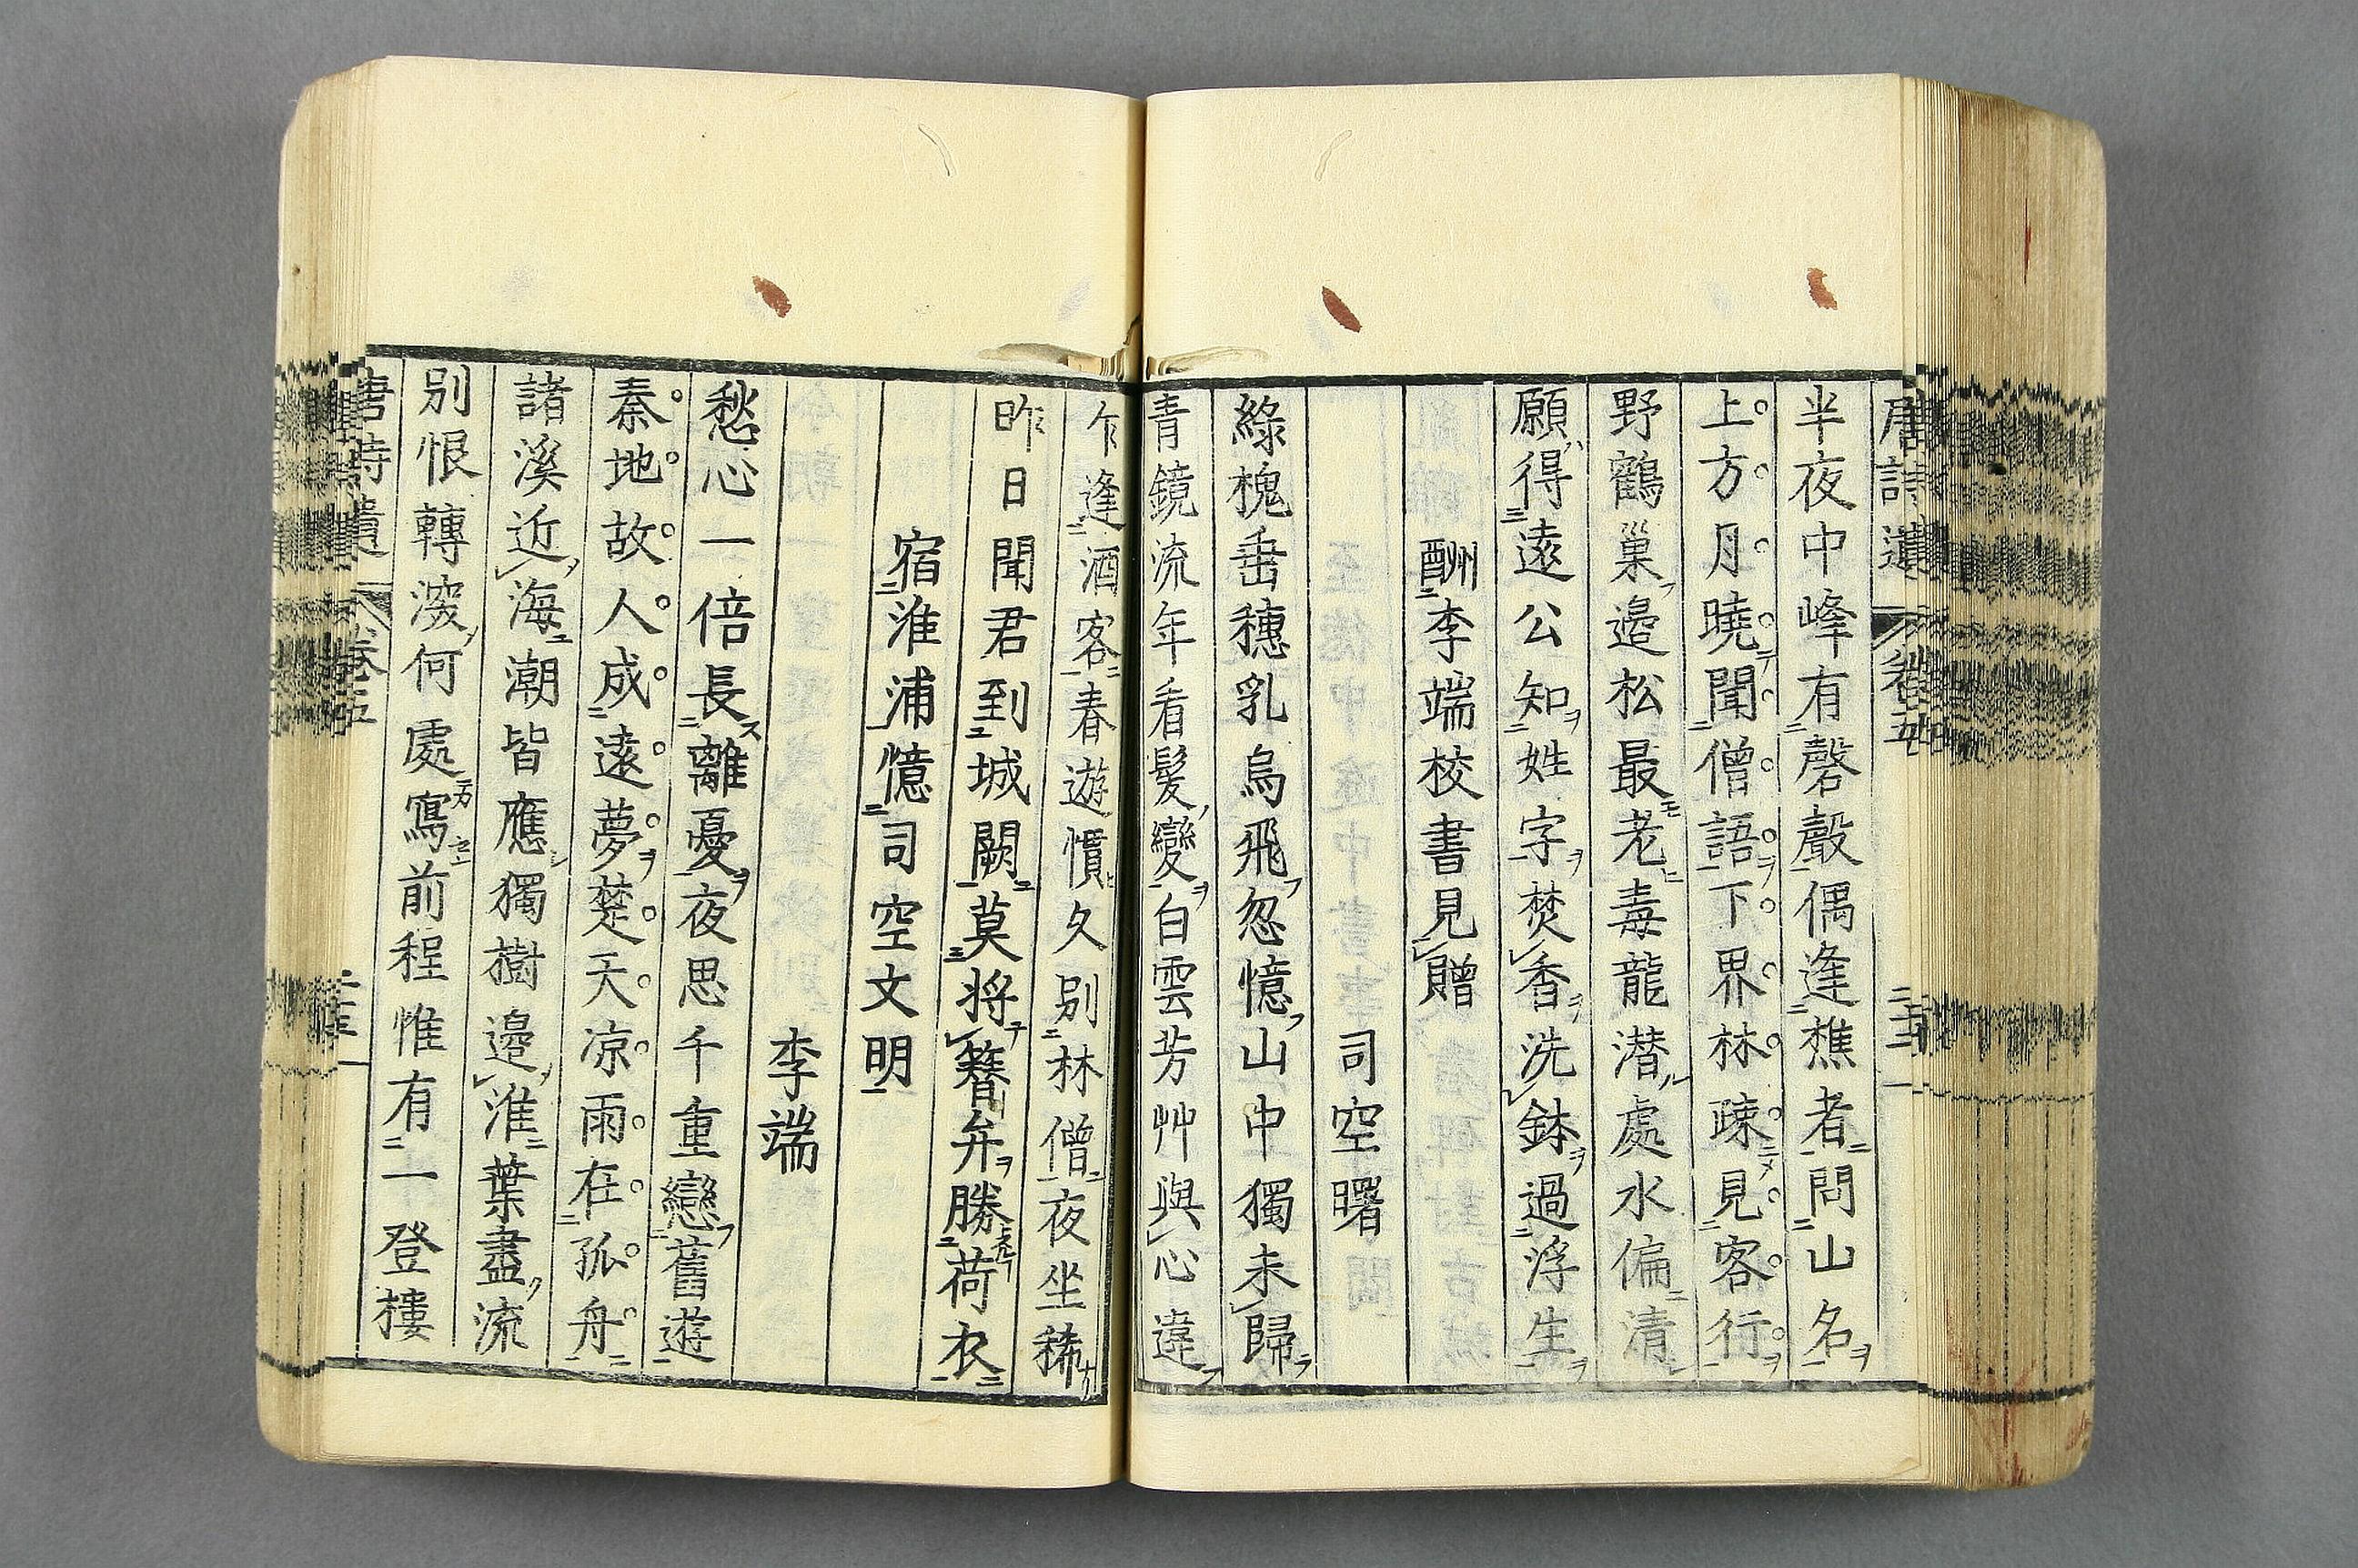 半夜中峰有磬聲偶逢樵者問山名
上方月曉聞僧語下界林疎見客行
野鶴巢邉松最老毒龍潜處水偏清
願得遠公知姓字焚香洗鉢過浮生
酬李端校書見贈
司空曙
綠槐垂穗乳烏飛忽憶山中獨未歸
青鏡流年看髮變白雲芳艸與心違
乍逢酒客春遊慣久別林僧夜坐稀
昨日聞君到城闕莫將簪弁勝荷衣
宿淮浦憶司空文明
李端
愁心一倍長離憂夜思千重戀舊遊
秦地故人成遠夢楚天凉雨在孤舟
諸溪近海潮皆應獨樹邉淮葉盡流
別恨轉深何處寫前程惟有一登樓